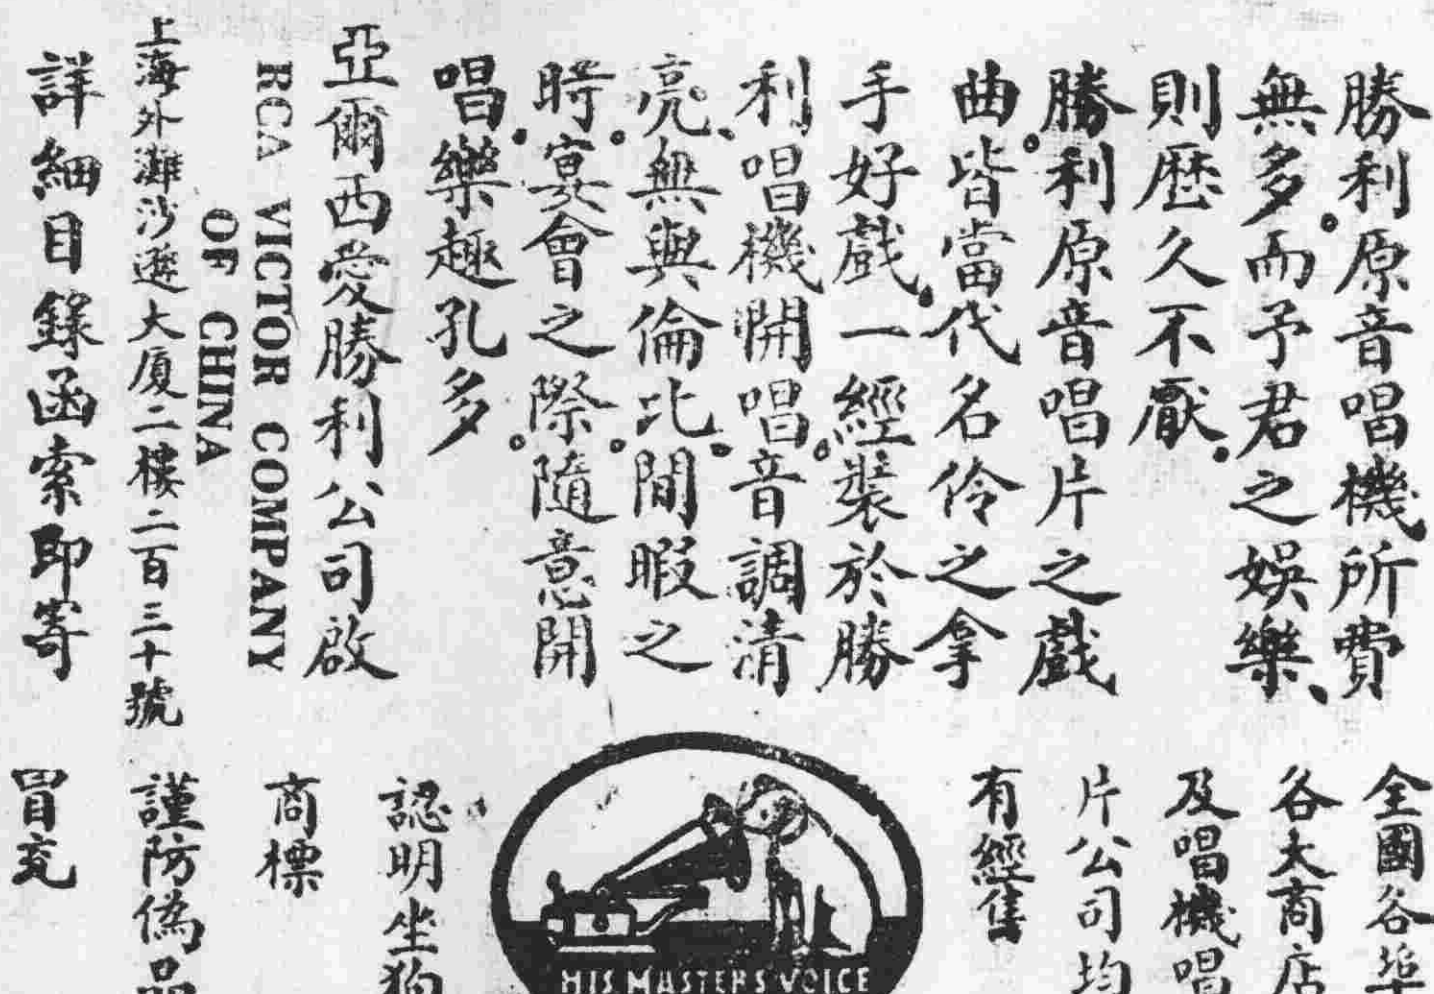 勝利原音唱機所費
無多。而予君之娛樂、
則歷久不厭。
勝利原音唱片之戲
曲。皆當代名伶之拿
手好戲、一經裝於勝
利唱機開唱。音調清
亮、無與倫比。閒暇之
時。宴會之際。隨意開
唱。樂趣孔多。
亞爾西愛勝利公司啟
RCA VICTOR COMPANY
OF CHINA
上海外灘沙遜大厦二樓二百三十號
詳細目錄函索即寄
全國各埠
各大商店
及唱機唱
片公司均
有經售
HIS MASTERS VOICE
認明坐狗
商標
謹防偽品
冒充